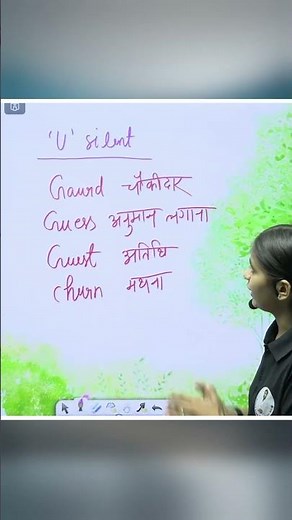 'U' silent
Gaurd चौकीदार
Guess अनुमान लगाना
Guest अतिथि
Churn मथना